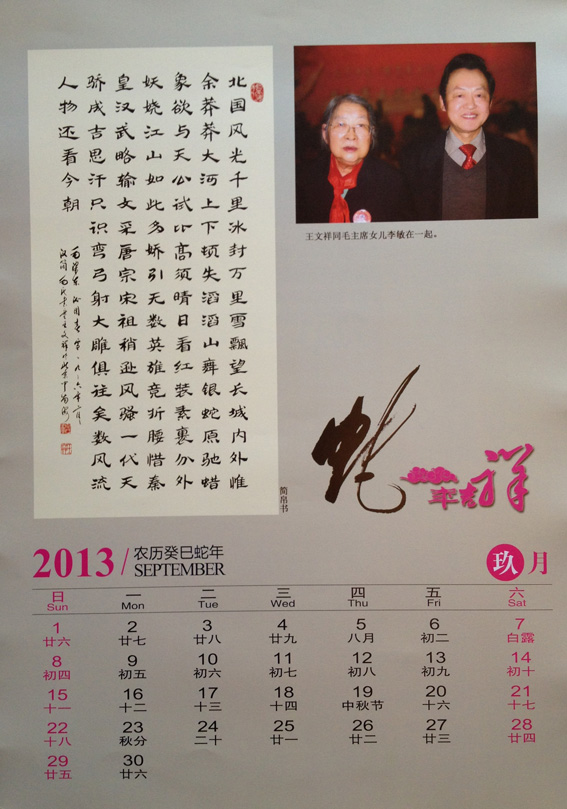 北国风光千里冰封万里雪飘望长城内外惟
余莽莽大河上下顿失滔滔山舞银蛇原驰蜡
象欲与天公试比高须晴日看红装素裹分外
妖娆江山如此多娇引无数英雄竞折腰惜秦
皇汉武略输文采唐宗宋祖稍逊风骚一代天
骄成吉思汗只识弯弓射大雕俱往矣数风流
人物还看今朝
简帛书
王文祥同毛主席女儿李敏在一起。
蛇年吉祥
2013/农历癸巳蛇年
SEPTEMBER
玖月
日 一 二 三 四 五 六
Sun Mon Tue Wed Thu Fri Sat
1 2 3 4 5 6 7
廿六 廿七 廿八 廿九 八月 初二 白露
8 9 10 11 12 13 14
初四 初五 初六 初七 初八 初九 初十
15 16 17 18 19 20 21
十一 十二 十三 十四 中秋节 十六 十七
22 23 24 25 26 27 28
十八 秋分 二十 廿一 廿二 廿三 廿四
29 30
廿五 廿六